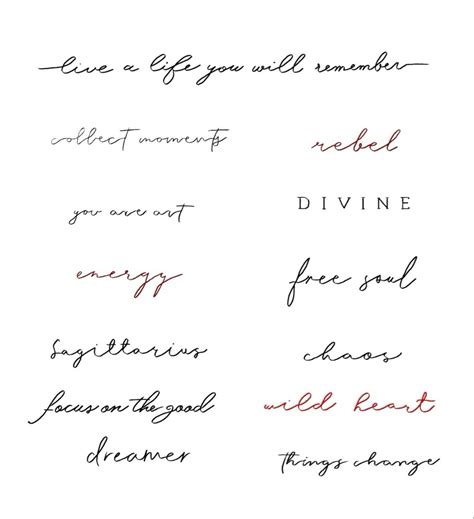 live a life you will remember
collect moments
rebel
you are art
DIVINE
energy
free soul
Sagittarius
chaos
focus on the good
wild heart
dreamer
things change